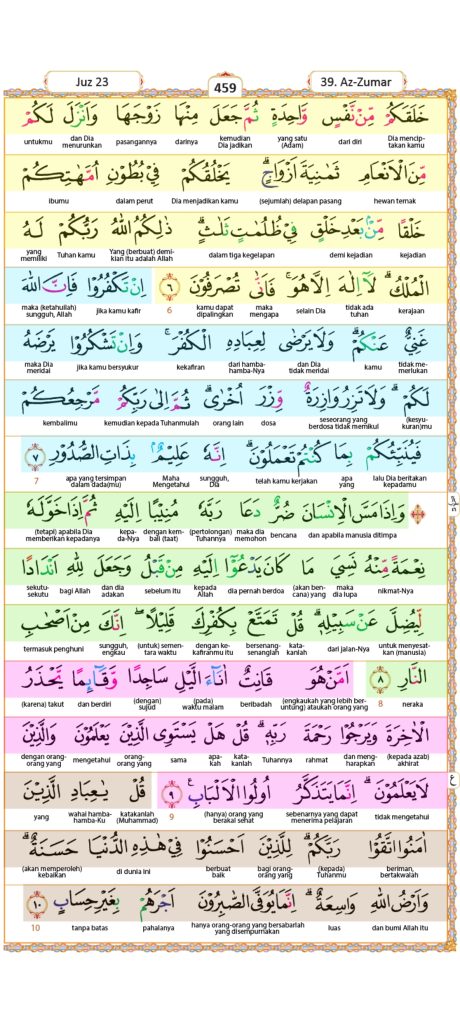 Juz 23
459
39. Az-Zumar
خَلَقَكُمْ مِّنْ نَّفْسٍ وَّاحِدَةٍ ثُمَّ جَعَلَ مِنْهَا زَوْجَهَا وَاَنْزَلَ لَكُمْ
Dia mencip-takan kamu dari diri yang satu (Adam) kemudian Dia jadikan darinya pasangannya dan Dia menurunkan untukmu
مِّنَ الْاَنْعَامِ ثَمٰنِيَةَ اَزْوَاجٍۗ يَخْلُقُكُمْ فِيْ بُطُوْنِ اُمَّهٰتِكُمْ
hewan ternak (sejumlah) delapan pasang Dia menjadikan kamu dalam perut ibumu
خَلْقًا مِّنْۢ بَعْدِ خَلْقٍ فِيْ ظُلُمٰتٍ ثَلٰثٍۗ ذٰلِكُمُ اللّٰهُ رَبُّكُمْ لَهُ
kejadian demi kejadian dalam tiga kegelapan Yang (berbuat) demi-kian itu adalah Allah Tuhan kamu yang memiliki
الْمُلْكُۗ لَآ اِلٰهَ اِلَّا هُوَۚ فَاَنّٰى تُصْرَفُوْنَ ٦ اِنْ تَكْفُرُوْا فَاِنَّ اللّٰهَ
kerajaan tidak ada tuhan selain Dia maka mengapa kamu dapat dipalingkan 6 jika kamu kafir maka (ketahuilah) sungguh, Allah
غَنِيٌّ عَنْكُمْۗ وَلَا يَرْضٰى لِعِبَادِهِ الْكُفْرَۚ وَاِنْ تَشْكُرُوْا يَرْضَهُ
tidak me-merlukan kamu dan Dia tidak meridai dari hamba-hamba-Nya kekafiran jika kamu bersyukur maka Dia meridai
لَكُمْۗ وَلَا تَزِرُ وَازِرَةٌ وِّزْرَ اُخْرٰىۗ ثُمَّ اِلٰى رَبِّكُمْ مَّرْجِعُكُمْ
(kesyu-kuran)mu seseorang yang berdosa tidak memikul dosa orang lain kemudian kepada Tuhanmulah kembalimu
فَيُنَبِّئُكُمْ بِمَا كُنْتُمْ تَعْمَلُوْنَۗ اِنَّهٗ عَلِيْمٌۢ بِذَاتِ الصُّدُوْرِ ٧
lalu Dia beritakan kepadamu apa yang telah kamu kerjakan sungguh, Dia Maha Mengetahui apa yang tersimpan dalam dada(mu) 7
وَاِذَا مَسَّ الْاِنْسَانَ ضُرٌّ دَعَا رَبَّهٗ مُنِيْبًا اِلَيْهِ ثُمَّ اِذَا خَوَّلَهٗ
dan apabila manusia ditimpa bencana maka dia memohon (pertolongan) Tuhannya dengan kem-bali (taat) kepa-da-Nya (tetapi) apabila Dia memberikan kepadanya
نِعْمَةً مِّنْهُ نَسِيَ مَا كَانَ يَدْعُوْٓا اِلَيْهِ مِنْ قَبْلُ وَجَعَلَ لِلّٰهِ اَنْدَادًا
nikmat-Nya maka dia lupa (akan ben-cana) yang dia pernah berdoa kepada Allah sebelum itu dan dia adakan bagi Allah sekutu-sekutu
لِّيُضِلَّ عَنْ سَبِيْلِهٖۗ قُلْ تَمَتَّعْ بِكُفْرِكَ قَلِيْلًاۖ اِنَّكَ مِنْ اَصْحٰبِ
untuk menyesat-kan (manusia) dari jalan-Nya kata-kanlah bersenang-senanglah dengan ke-kafiranmu itu (untuk) semen-tara waktu sungguh, engkau termasuk penghuni
النَّارِ ٨ اَمَّنْ هُوَ قَانِتٌ اٰنَاۤءَ الَّيْلِ سَاجِدًا وَّقَاۤىِٕمًا يَّحْذَرُ
neraka 8 (engkaukah yang lebih ber-untung) ataukah orang yang beribadah (pada) waktu malam (dengan) sujud dan berdiri (karena) takut
الْاٰخِرَةَ وَيَرْجُوْا رَحْمَةَ رَبِّهٖۗ قُلْ هَلْ يَسْتَوِى الَّذِيْنَ يَعْلَمُوْنَ وَالَّذِيْنَ
(kepada azab) akhirat dan meng-harapkan rahmat Tuhannya kata-kanlah apa-kah sama orang-orang yang mengetahui dengan orang-orang yang
لَا يَعْلَمُوْنَۗ اِنَّمَا يَتَذَكَّرُ اُولُوا الْاَلْبَابِ ٩ قُلْ يٰعِبَادِ الَّذِيْنَ
tidak mengetahui sebenarnya yang dapat menerima pelajaran (hanya) orang yang berakal sehat 9 katakanlah (Muhammad) wahai hamba-hamba-Ku yang
اٰمَنُوا اتَّقُوْا رَبَّكُمْۗ لِلَّذِيْنَ اَحْسَنُوْا فِيْ هٰذِهِ الدُّنْيَا حَسَنَةٌۗ
beriman, bertakwalah (kepada) Tuhanmu bagi orang-orang yang berbuat baik di dunia ini (akan memperoleh) kebaikan
وَاَرْضُ اللّٰهِ وَاسِعَةٌۗ اِنَّمَا يُوَفَّى الصّٰبِرُوْنَ اَجْرَهُمْ بِغَيْرِ حِسَابٍ ١٠
dan bumi Allah itu luas hanya orang-orang yang bersabarlah yang disempurnakan pahalanya tanpa batas 10